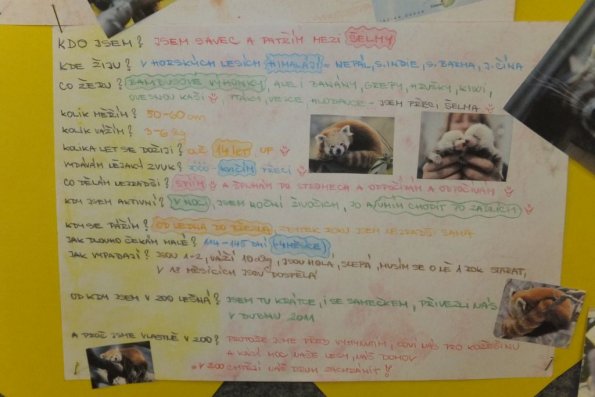 KDO JSEM? JSEM SAVEC A PATŘÍM MEZI ŠELMY
KDE ŽIJU? V HORSKÝCH LESÍCH HIMALÁJÍ - NEPÁL, S. INDIE, S. BARMA, J. ČÍNA
CO ŽERU? BAMBUSOVÉ VÝHONKY, ALE I BANÁNY, GREPY, HRUŠKY, KIWI,
OVESNOU KAŠI PTÁKY, VEJCE HLODAVCE - JSEM PŘECI ŠELMA
KOLIK MĚŘÍM? 50-60 cm
KOLIK VÁŽÍM? 3-6 kg
KOLIKA LET SE DOŽIJI? AŽ 14 LET
VYDÁVÁM NĚJAKÝ ZVUK? KVIČÍM PŘECI
CO DĚLÁM NEJRADŠI? SPÍM A ŠPLHÁM PO STROMECH A ODPOČÍVÁM A ODPOČÍVÁM
KDY JSEM AKTIVNÍ? V NOCI, JSEM NOČNÍ ŽIVOČICH, JO A UMÍM CHODIT PO ZADECH
KDY SE PÁŘÍM? OD LEDNA DO BŘEZNA, JSEM NEJRADŠI SAMA
JAK DLOUHO ČEKÁM MALÉ? 114-145 DNÍ (~4 MĚSÍCE)
JAK VYPADAJÍ? JSOU 1-2, VÁŽÍ 10 dkg, JSOU HOLÁ, SLEPÁ, MUSÍM SE O NĚ 1 ROK STARAT,
V 18 MĚSÍCÍCH JSOU DOSPĚLÁ
OD KDY JSEM V ZOO LEŠNÁ? JSEM TU KRÁTCE, I SE SAMEČKEM, PŘIVEZLI NÁS
V DUBNU 2011
A PROČ JSME VLASTNĚ V ZOO? PROTOŽE JSME PŘED VYHYNUTÍM, LOVÍ NÁS PRO KOŽEŠINU
A KÁCÍ MOC NAŠE LESY, NÁŠ DOMOV
V ZOO CHTĚJÍ NÁŠ DRUH ZACHRÁNIT!